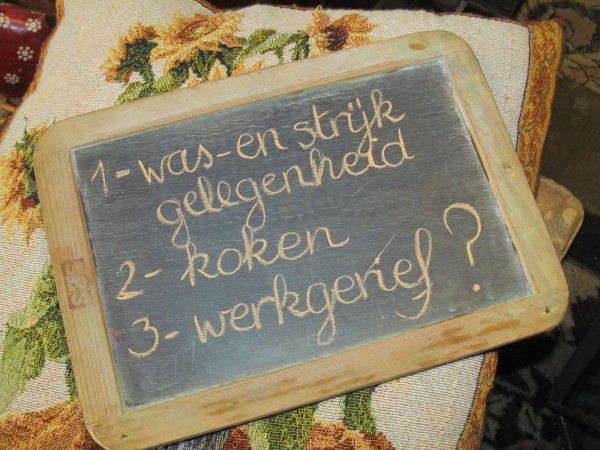 1- was-en strijk
gelegenheid
2- koken
3- werkgerief ?